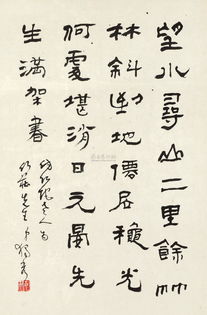 望水尋山二里餘竹
林斜到地僊居穐光
何處堪消日元晏先
生滿架書
先生